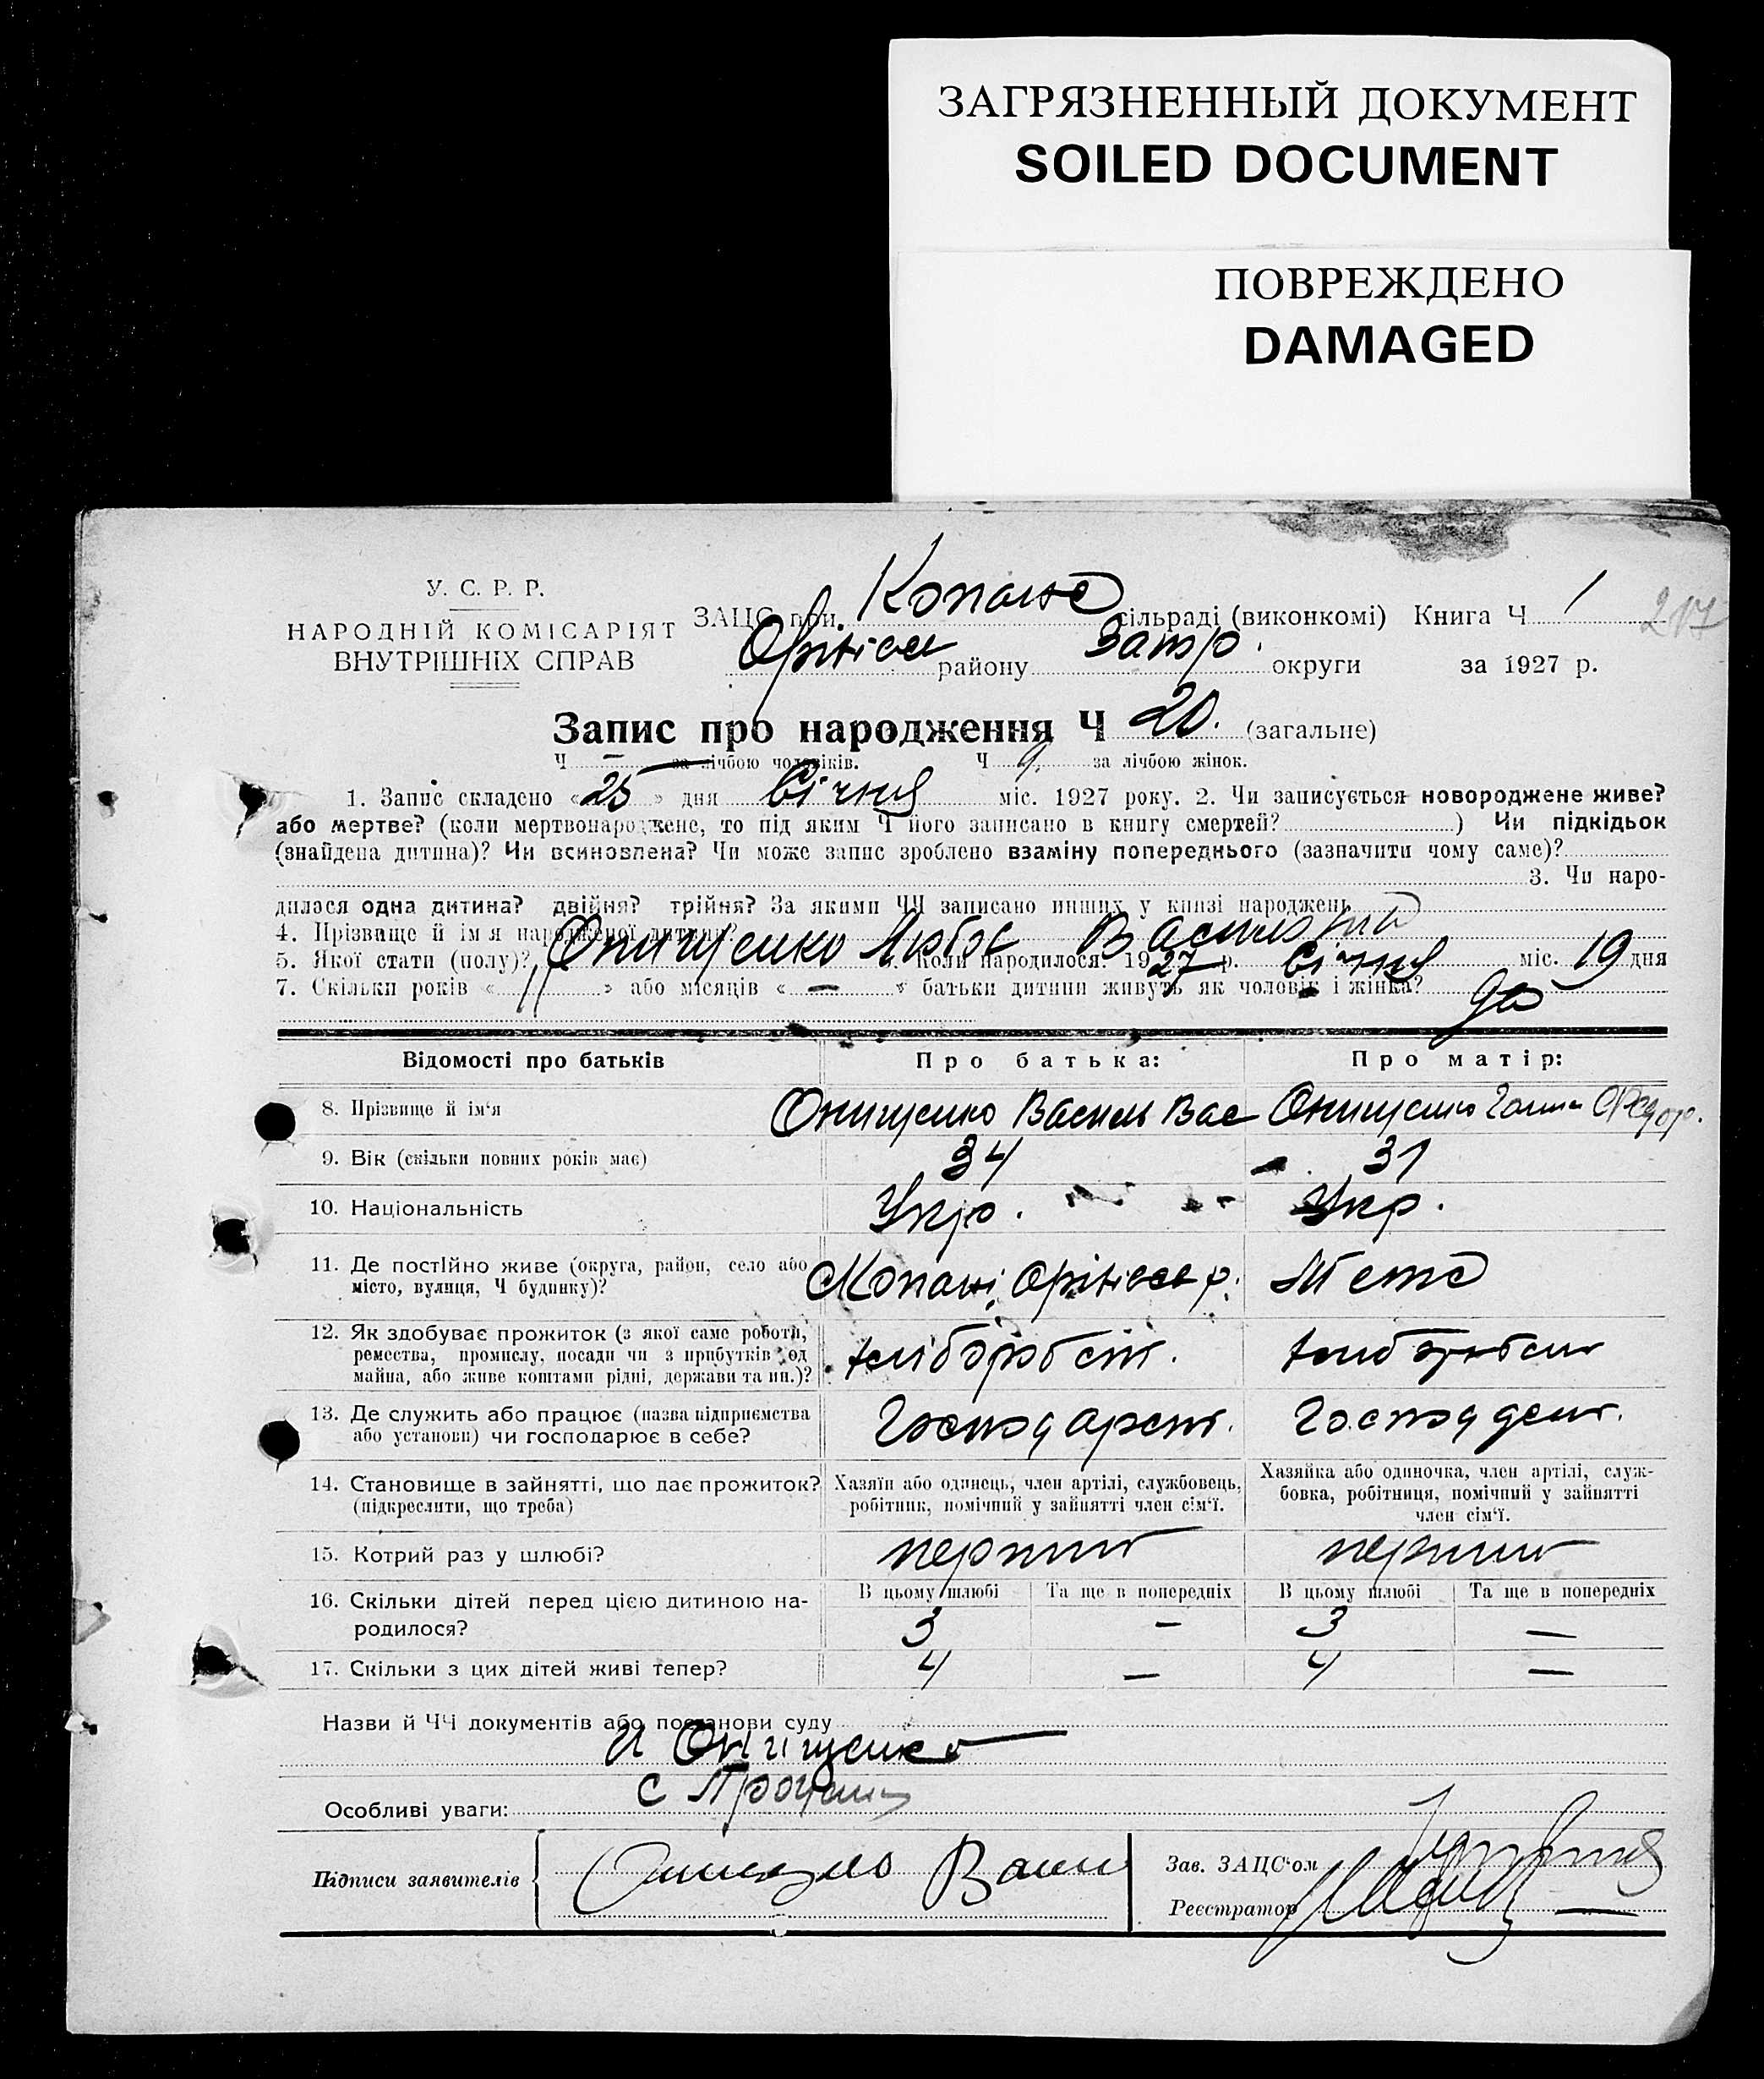 ЗАГРЯЗНЕННЫЙ ДОКУМЕНТ
SOILED DOCUMENT
ПОВРЕЖДЕНО
DAMAGED
У. С. Р. Р.
НАРОДНІЙ КОМІСАРІЯТ
ВНУТРІШНІХ СПРАВ
ЗАЦС при сільраді (виконкомі) Книга Ч 1
217
району Запор. округи за 1927 р.
Запис про народження Ч 20. (загальне)
Ч — за лічбою чоловіків. Ч 9. за лічбою жінок.
1. Запис складено «25» дня Січня міс. 1927 року. 2. Чи записується новороджене живе?
або мертве? (коли мертвонароджене, то під яким Ч його записано в книгу смертей? ) Чи підкідьок
(знайдена дитина)? Чи всиновлена? Чи може запис зроблено взаміну попереднього (зазначити чому саме)?
3. Чи наро-
дилася одна дитина? двійня? трійня? За якими ЧЧ записано инших у книзі народжень
4. Прізваще й ім'я народженої дитини? Онищенко Любов Василівна
5. Якої стати (полу)? Коли народилося: 1927 р. Січня міс. 19 дня
7. Скільки років « 11 » або місяців « — » батьки дитини живуть як чоловік і жінка? да
Відомості про батьків Про батька: Про матір:
8. Прізвище й ім'я Онищенко Василь Вас Онищенко Ганна Федор.
9. Вік (скільки повних років має) 34 31
10. Національність Укр. Укр.
11. Де постійно живе (округа, район, село або
місто, вулиця, Ч будинку)? Копані, Оріхівськ р. Теж
12. Як здобуває прожиток (з якої саме роботи,
ремества, промислу, посади чи з прибутків од
майна, або живе коштами рідні, держави та ин.)? хліборобст.
13. Де служить або працює (назва підприємства
або установи) чи господарює в себе? Господарст.
14. Становище в зайнятті, що дає прожиток?
(підкреслити, що треба)
Хазяїн або одинець, член артілі, службовець,
робітник, помічний у зайнятті член сім'ї.
Хазяйка або одиночка, член артілі, служ-
бовка, робітниця, помічний у зайнятті
член сім'ї.
15. Котрий раз у шлюбі? перший перший
16. Скільки дітей перед цією дитиною на-
родилося?
В цьому шлюбі Та ще в попередніх В цьому шлюбі Та ще в попередніх
3 — 3 —
17. Скільки з цих дітей живі тепер? 4 — 4 —
Назви й ЧЧ документів або постанови суду
И Онищенко
Особливі уваги:
Підписи заявителів
Зав. ЗАЦС'ом
Реєстратор